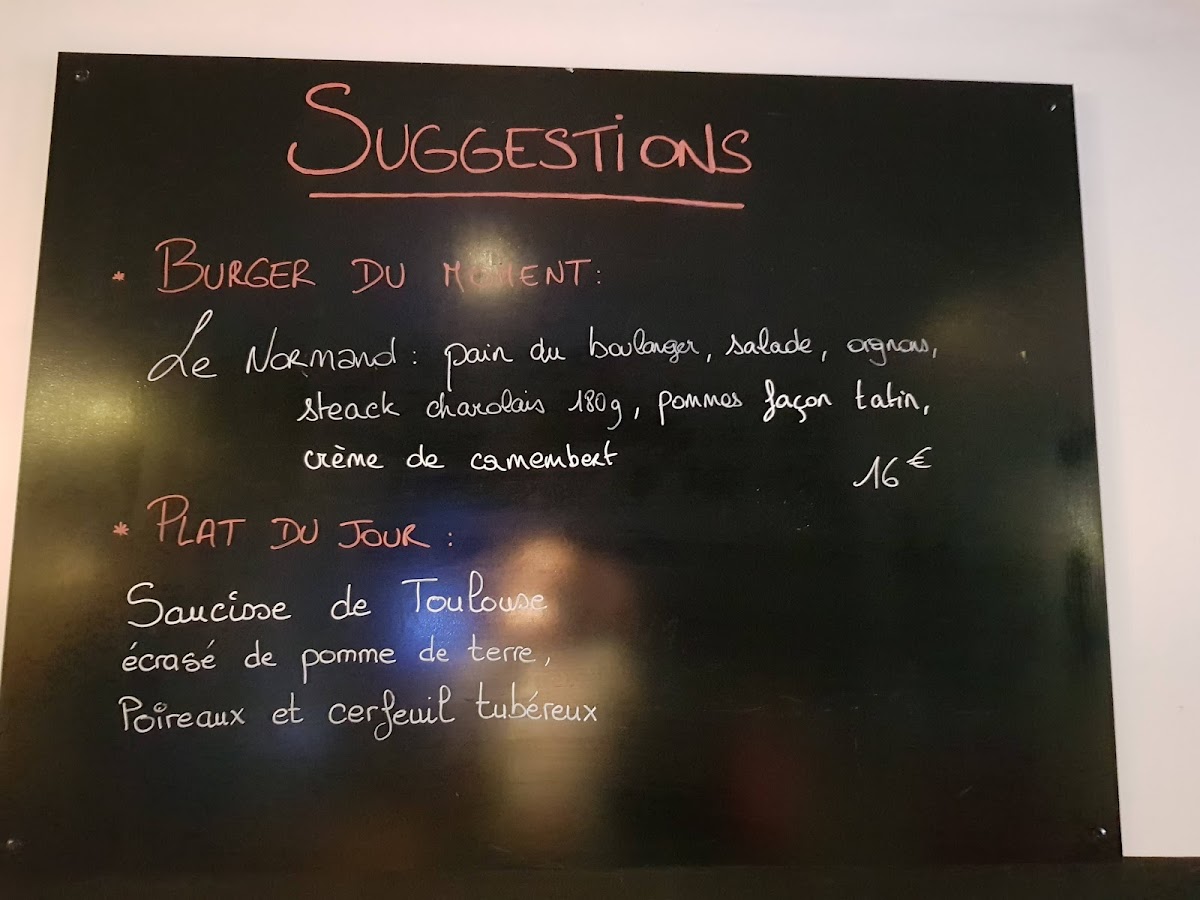 SUGGESTIONS
* BURGER DU MOMENT :
Le NORMAND : pain du boulanger, salade, oignons,
steack charolais 180g, pommes façon tatin,
crème de camembert
16€
* PLAT DU JOUR :
Saucisse de Toulouse
écrasé de pomme de terre,
Poireaux et cerfeuil tubéreux